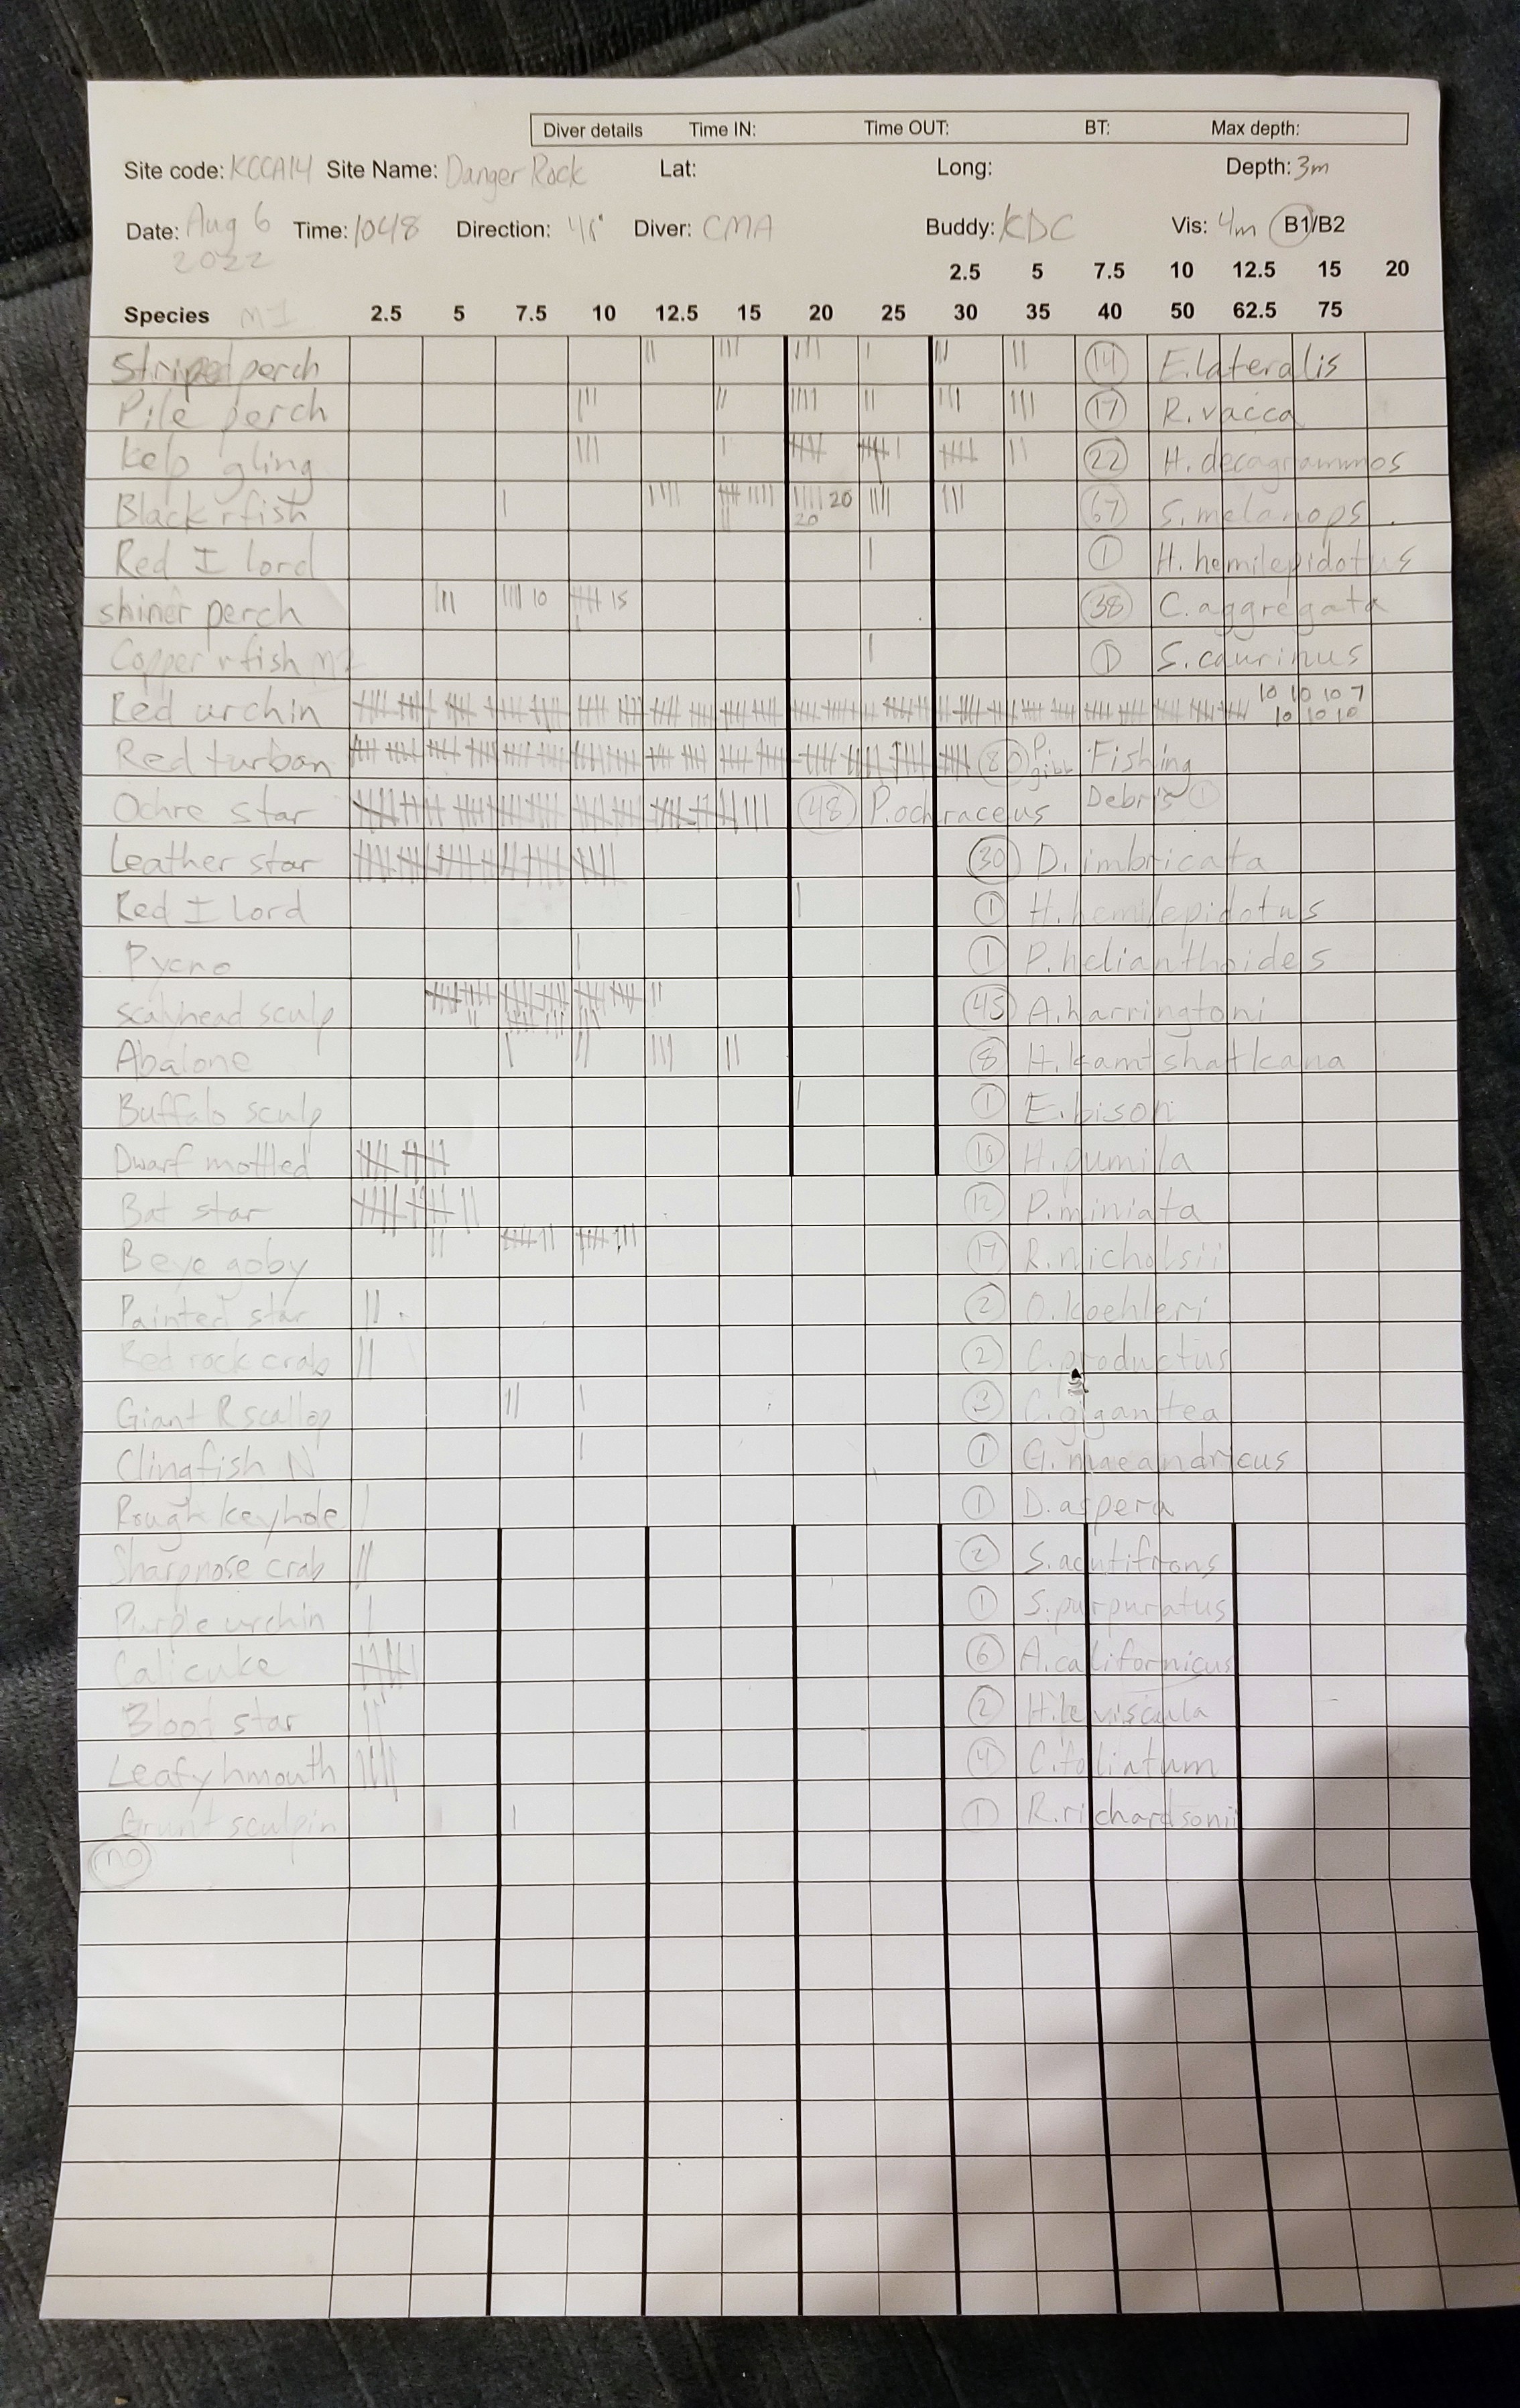 Diver details Time IN: Time OUT: BT: Max depth:
Site code: KCCA14 Site Name: Danger Rock Lat: Long: Depth: 3m
Date: Aug 6 2022 Time: 1048 Direction: Diver: CMA Buddy: KDC Vis: 4m B1/B2
2.5 5 7.5 10 12.5 15 20
Species 2.5 5 7.5 10 12.5 15 20 25 30 35 40 50 62.5 75
Striped perch 14 E.lateralis
Pile perch 17 R.vacca
Kelp gling 22 H.decagrammos
Black rfish 20 20 67 S.melanops
Red I lord 1 H.hemilepidotus
shiner perch 10 15 38 C.aggregata
Copper rfish M2 1 S.caurinus
Red urchin 10 10 10 7 10 10 10
Red turban 80 P. gibb Fishing
Ochre star 48 P.ochraceus Debris 1
Leather star 30 D.imbricata
Red I lord 1 H.hemilepidotus
Pycno 1 P.helianthoides
scalyhead sculp 45 A.harringtoni
Abalone 8 H.kamtshatkana
Buffalo sculp 1 E.bison
Dwarf mottled 10 H.gumila
Bat star 12 P.miniata
Beye goby 17 R.nicholsii
Painted star 2 O.koehleri
Red rock crab 2 C.productus
Giant R scallop 3 C.gigantea
Clingfish N 1 G.maeandricus
Rough keyhole 1 D.aspera
Sharpnose crab 2 S.acutifrons
Purple urchin 1 S.purpuratus
Cali cuke 6 A.californicus
Blood star 2 H.leviscula
Leafy hmouth 4 C.foliatum
Grunt sculpin 1 R.richardsonii